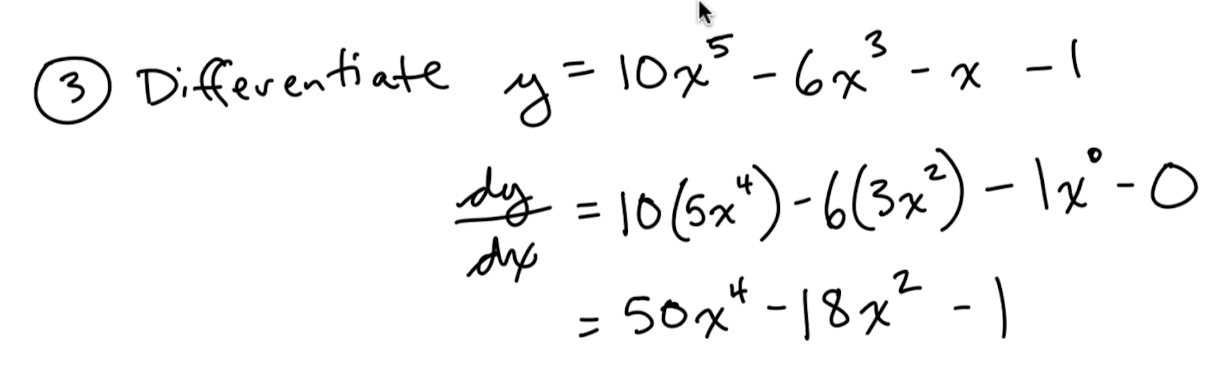 ③ Differentiate y = 10x⁵ - 6x³ - x - 1
dy/dx = 10(5x⁴) - 6(3x²) - 1x⁰ - 0
= 50x⁴ - 18x² - 1